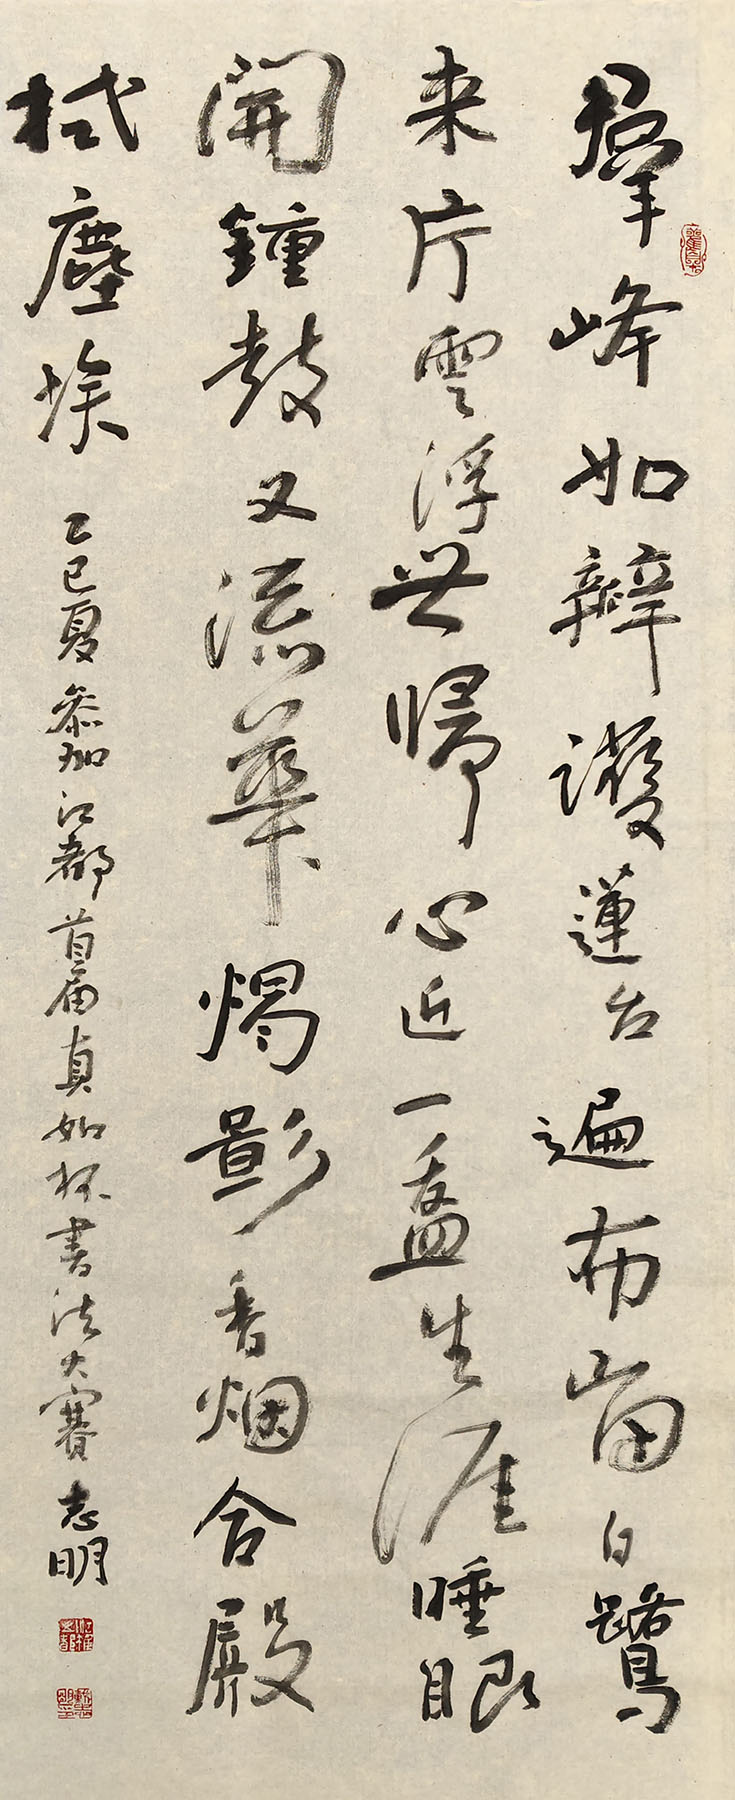 羣峰如瓣護蓮台遍布山白鷺
来片雲浮世歸心近一盏生涯睡眼
開鐘鼓又流華燭影香烟合殿
拭塵埃 乙巳夏参加江都首届真如杯書法大賽 志明